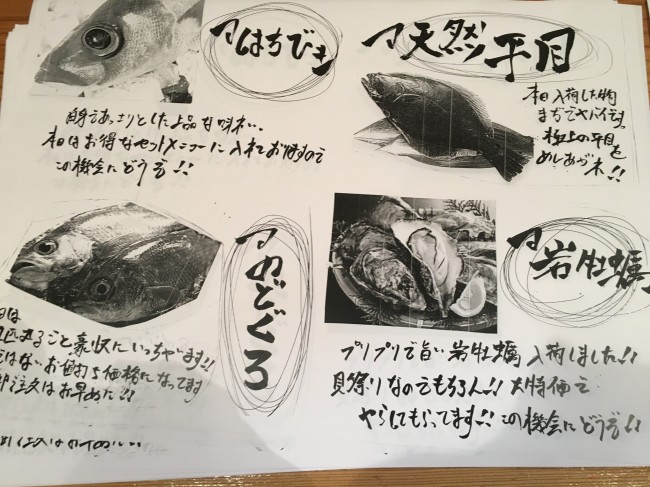 はちびき
白身であっさりとした上品な味わい、
本日はお得なセットメニューに入れておりますので
この機会にどうぞ!!
天然平目
本日入荷した物
まぢでヤバイです。
極上の平目を
めしあがれ!!
のどぐろ
日は
匹丸ごと豪快にいっちゃいます!!
ではないお値打ち価格になってます
ご注文はお早めに!!
岩牡蠣
プリプリで旨い岩牡蠣入荷しました!!
貝祭りなのでもちろん!!大特価で
やらしてもらってます!!この機会にどうぞ!!